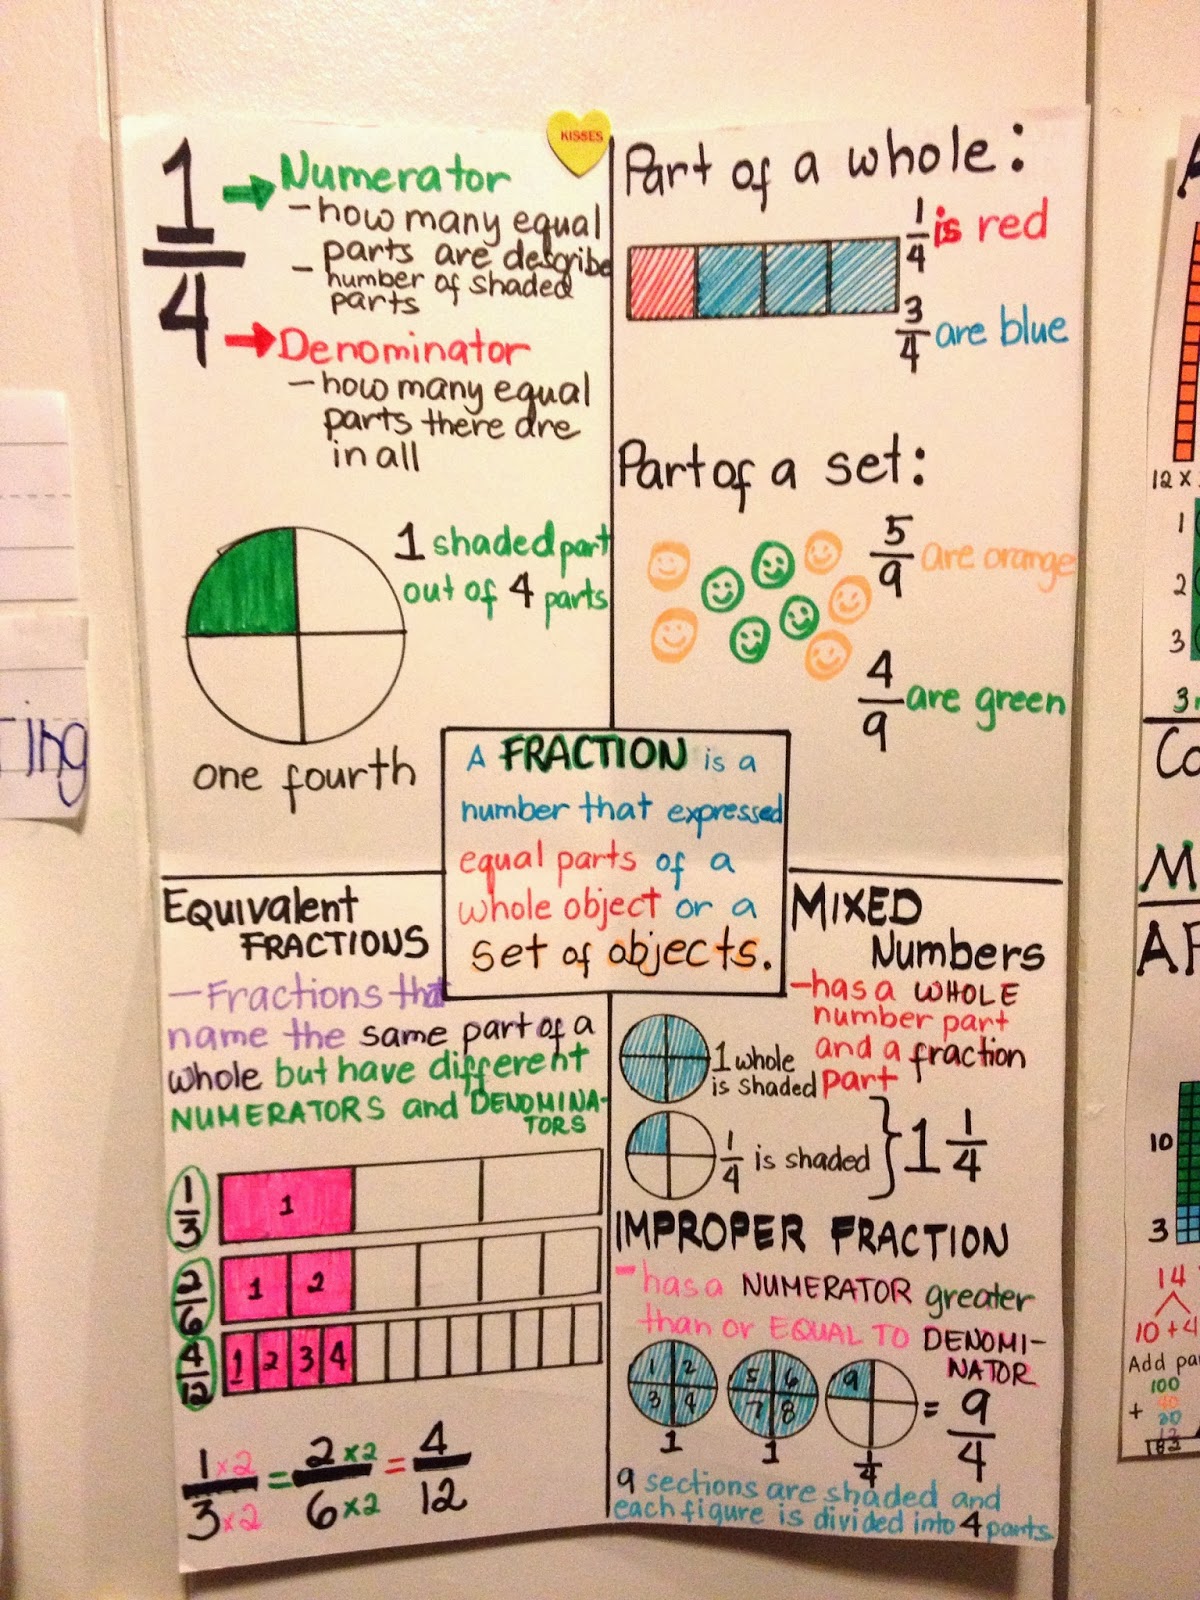 KISSES
1
4
Numerator
- how many equal
parts are describe
- number of shaded
parts
Denominator
- how many equal
parts there are
in all
1 shaded part
out of 4 parts
one fourth
Part of a whole:
1/4 is red
3/4 are blue
Part of a set:
5/9 are orange
4/9 are green
A FRACTION is a
number that expressed
equal parts of a
whole object or a
set of objects.
EQUIVALENT
FRACTIONS
- Fractions that
name the same part of a
whole but have different
NUMERATORS and DENOMINA-
TORS
1/3 1
2/6 1 2
4/12 1 2 3 4
1 x2 / 3 x2 = 2 x2 / 6 x2 = 4/12
MIXED
Numbers
- has a WHOLE
number part
and a fraction
part
1 whole
is shaded
1/4 is shaded } 1 1/4
IMPROPER FRACTION
- has a NUMERATOR greater
than or EQUAL TO DENOMI-
NATOR
1 2 5 6 9
3 4 7 8
= 9/4
1 1 1/4
9 sections are shaded and
each figure is divided into 4 parts
ring
12 x
1
2
3
3
Co
M
10
3
14
10 + 4
Add pa
100
+